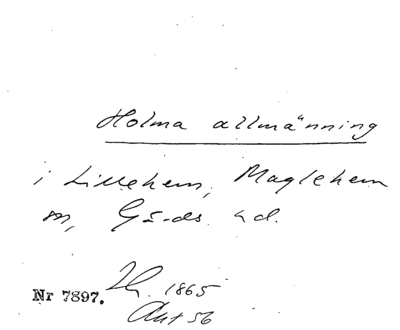 Holma allmänning
i Lillehem, Maglehem
sn, Gärds hd.
1865
Nr 7897.
Akt 56